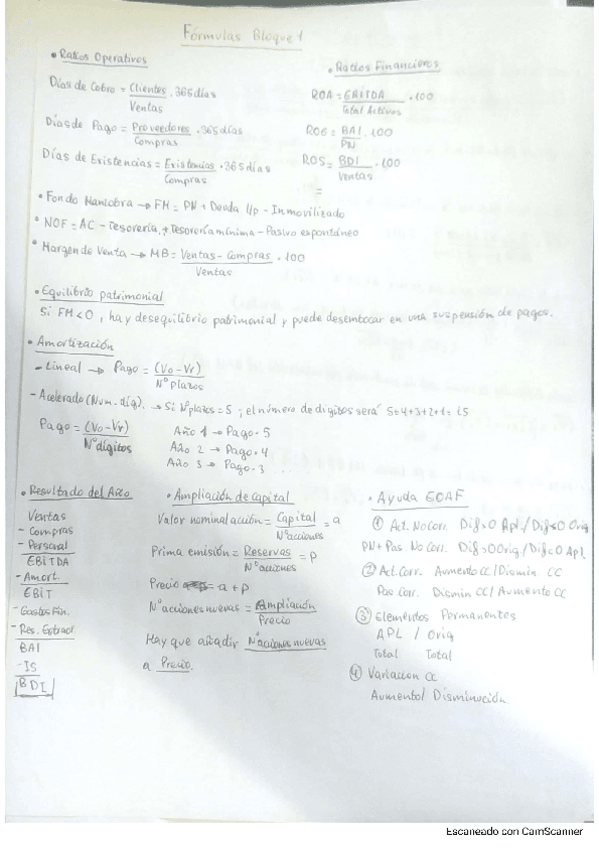 Fórmulas Bloque 1
• Ratios Operativos
Días de Cobro = Clientes / Ventas . 365 días
Días de Pago = Proveedores / Compras . 365 días
Días de Existencias = Existencias / Compras . 365 días
• Ratios Financieros
ROA = EBITDA / Total Activos . 100
ROE = BAI / PN . 100
ROS = BDI / Ventas . 100
=
• Fondo Maniobra → FM = PN + Deuda l/p - Inmovilizado
• NOF = AC - Tesorería + Tesorería mínima - Pasivo espontáneo
• Margen de Venta → MB = Ventas - Compras / Ventas . 100
• Equilibrio patrimonial
Si FM < 0, hay desequilibrio patrimonial y puede desembocar en una suspensión de pagos.
• Amortización
- Lineal → Pago = (Vo - Vr) / Nº plazos
- Acelerado (Num. díg). → Si Nº plazos = 5 ; el número de dígitos será 5+4+3+2+1 = 15
Pago = (Vo - Vr) / Nº dígitos
Año 1 → Pago . 5
Año 2 → Pago . 4
Año 3 → Pago . 3 ...
• Resultado del Año
Ventas
- Compras
- Personal
EBITDA
- Amort.
EBIT
- Gastos Fin.
- Res. Extraor.
BAI
- IS
BDI
• Ampliación de Capital
Valor nominal acción = Capital / Nº acciones = a
Prima emisión = Reservas / Nº acciones = p
Precio = a + p
Nº acciones nuevas = Ampliación / Precio
Hay que añadir Nº acciones nuevas
a Precio.
• Ayuda EOAF
① Act. No Corr. Dif > 0 Apl. / Dif < 0 Orig
PN + Pas. No Corr. Dif > 0 Orig / Dif < 0 Apl
② Act. Corr. Aumento CC / Dismin. CC
Pas Corr. Dismin CC / Aumento CC
③ Elementos Permanentes
APL / Orig
Total Total
④ Variacion CC
Aumento / Disminución
Escaneado con CamScanner